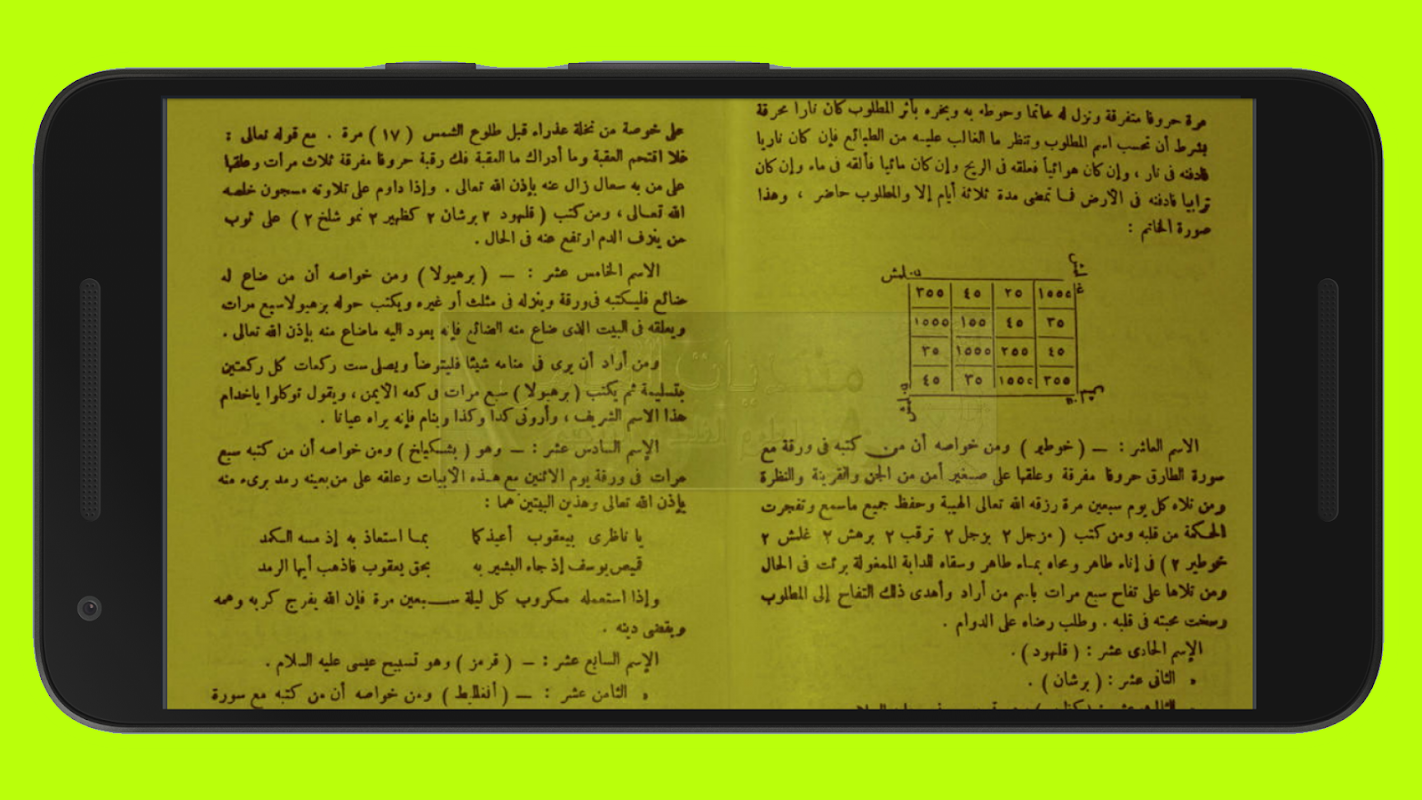 مرة حروفا متفرقة ونزل له خاتما وحوطه به وبخره بأثر المطلوب كان نارا محرقة
بشرط أن تحسب اسم المطلوب وتنظر ما الغالب عليه من الطبائع فإن كان ناريا
فادفنه فى نار ، وإن كان هوائياً فعلقه فى الريح وإن كان مائيا فألقه فى ماء وإن كان
ترابيا فادفنه فى الأرض فما تمضى مدة ثلاثة أيام إلا والمطلوب حاضر ، وهذا
صورة الخاتم :
غلش
٣٥٥ ٤٥ ٢٥
١٥٥ ٤٥ ٣٥
٣٥ ١٥٥٥ ٢٥٥ ٤٥
٤٥ ٣٥ ٣٥٥
الاسم العاشر : — ( خوطير ) ومن خواصه أن من كتبه فى ورقة مع
سورة الطارق حروفا مفرقة وعلقها على صغير أمن من الجن والقرينة والنظرة
ومن تلاه كل يوم سبعين مرة رزقه الله تعالى الهيبة وحفظ جميع ماسمع وتفجرت
الحكمة من قلبه ومن كتب ( مزجل ٢ بزجل ٢ ترقب ٢ برهش ٢ غلمش ٢
خوطير ٢ ) فى إناء طاهر ومحاه بماء طاهر وسقاه للدابة الممغولة برئت فى الحال
ومن تلاها على تفاح سبع مرات باسم من أراد وأهدى ذلك التفاح إلى المطلوب
وسخت محبته فى قلبه . وطلب رضاه على الدوام .
الإسم الحادى عشر : ( قلنهود ) .
« الثانى عشر : ( برشان ) .
على خوصة من نخلة عذراء قبل طلوع الشمس ( ١٧ ) مرة . مع قوله تعالى :
فلا اقتحم العقبة وما أدراك ما العقبة فك رقبة حروفا مفرقة ثلاث مرات وعلقها
على من به سعال زال عنه بإذن الله تعالى . وإذا داوم على تلاوته مسجون خلصه
الله تعالى ، ومن كتب ( قلنهود ٢ برشان ٢ كظهير ٢ نمو شلخ ٢ ) على ثوب
من ينزف الدم ارتفع عنه فى الحال .
الاسم الخامس عشر : — ( برهيولا ) ومن خواصه أن من ضاع له
ضائع فليكتبه فى ورقة وينزله فى مثلث أو غيره ويكتب حوله برهيولا سبع مرات
ويعلقه فى البيت الذى ضاع منه الضائع فإنه يعود اليه ماضاع منه بإذن الله تعالى .
ومن أراد أن يرى فى منامه شيئا فليتوضأ ويصلى ست ركعات كل ركعتين
بتسليمة ثم يكتب ( برهيولا ) سبع مرات فى كفه الأيمن ، ويقول توكلوا ياخدام
هذا الاسم الشريف ، وأرونى كذا وكذا وينام فإنه يراه عيانا .
الإسم السادس عشر : — وهو ( بشكيلخ ) ومن خواصه أن من كتبه سبع
مرات فى ورقة يوم الاثنين مع هذه الأبيات وعلقه على من بعينه رمد برىء منه
بإذن الله تعالى وهذين البيتين هما :
يا ناظرى بيعقوب أعيذكا بما استعاذ به إذ مسه الكمد
قميص يوسف إذ جاء البشير به بحق يعقوب فاذهب أيها الرمد
وإذا استعمله مكروب كل ليلة سبعين مرة فإن الله يفرج كربه وهمه
ويقضى دينه .
الإسم السابع عشر : — ( قزمز ) وهو تسبيح عيسى عليه السلام .
« الثامن عشر : — ( أنغلليط ) ومن خواصه أن من كتبه مع سورة